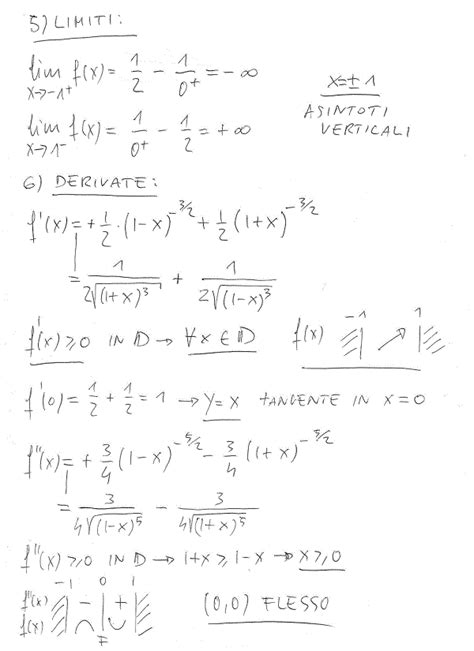 5) LIMITI:
lim x→-1⁺ f(x) = 1/2 - 1/0⁺ = -∞
lim x→1⁻ f(x) = 1/0⁺ - 1/2 = +∞
x=±1
ASINTOTI
VERTICALI
6) DERIVATE:
f'(x) = +1/2·(1-x)^(-3/2) + 1/2(1+x)^(-3/2)
= 1/(2√(1+x)³) + 1/(2√(1-x)³)
f'(x) ≥ 0 IN D → ∀x∈D f(x) -1 ↗ 1
f'(0) = 1/2 + 1/2 = 1 → y=x TANGENTE IN x=0
f''(x) = +3/4(1-x)^(-5/2) - 3/4(1+x)^(-5/2)
= 3/(4√(1-x)⁵) - 3/(4√(1+x)⁵)
f''(x) ≥ 0 IN D → 1+x ≥ 1-x → x ≥ 0
-1 0 1
f''(x) - +
f(x) ∩ ∪
F
(0,0) FLESSO